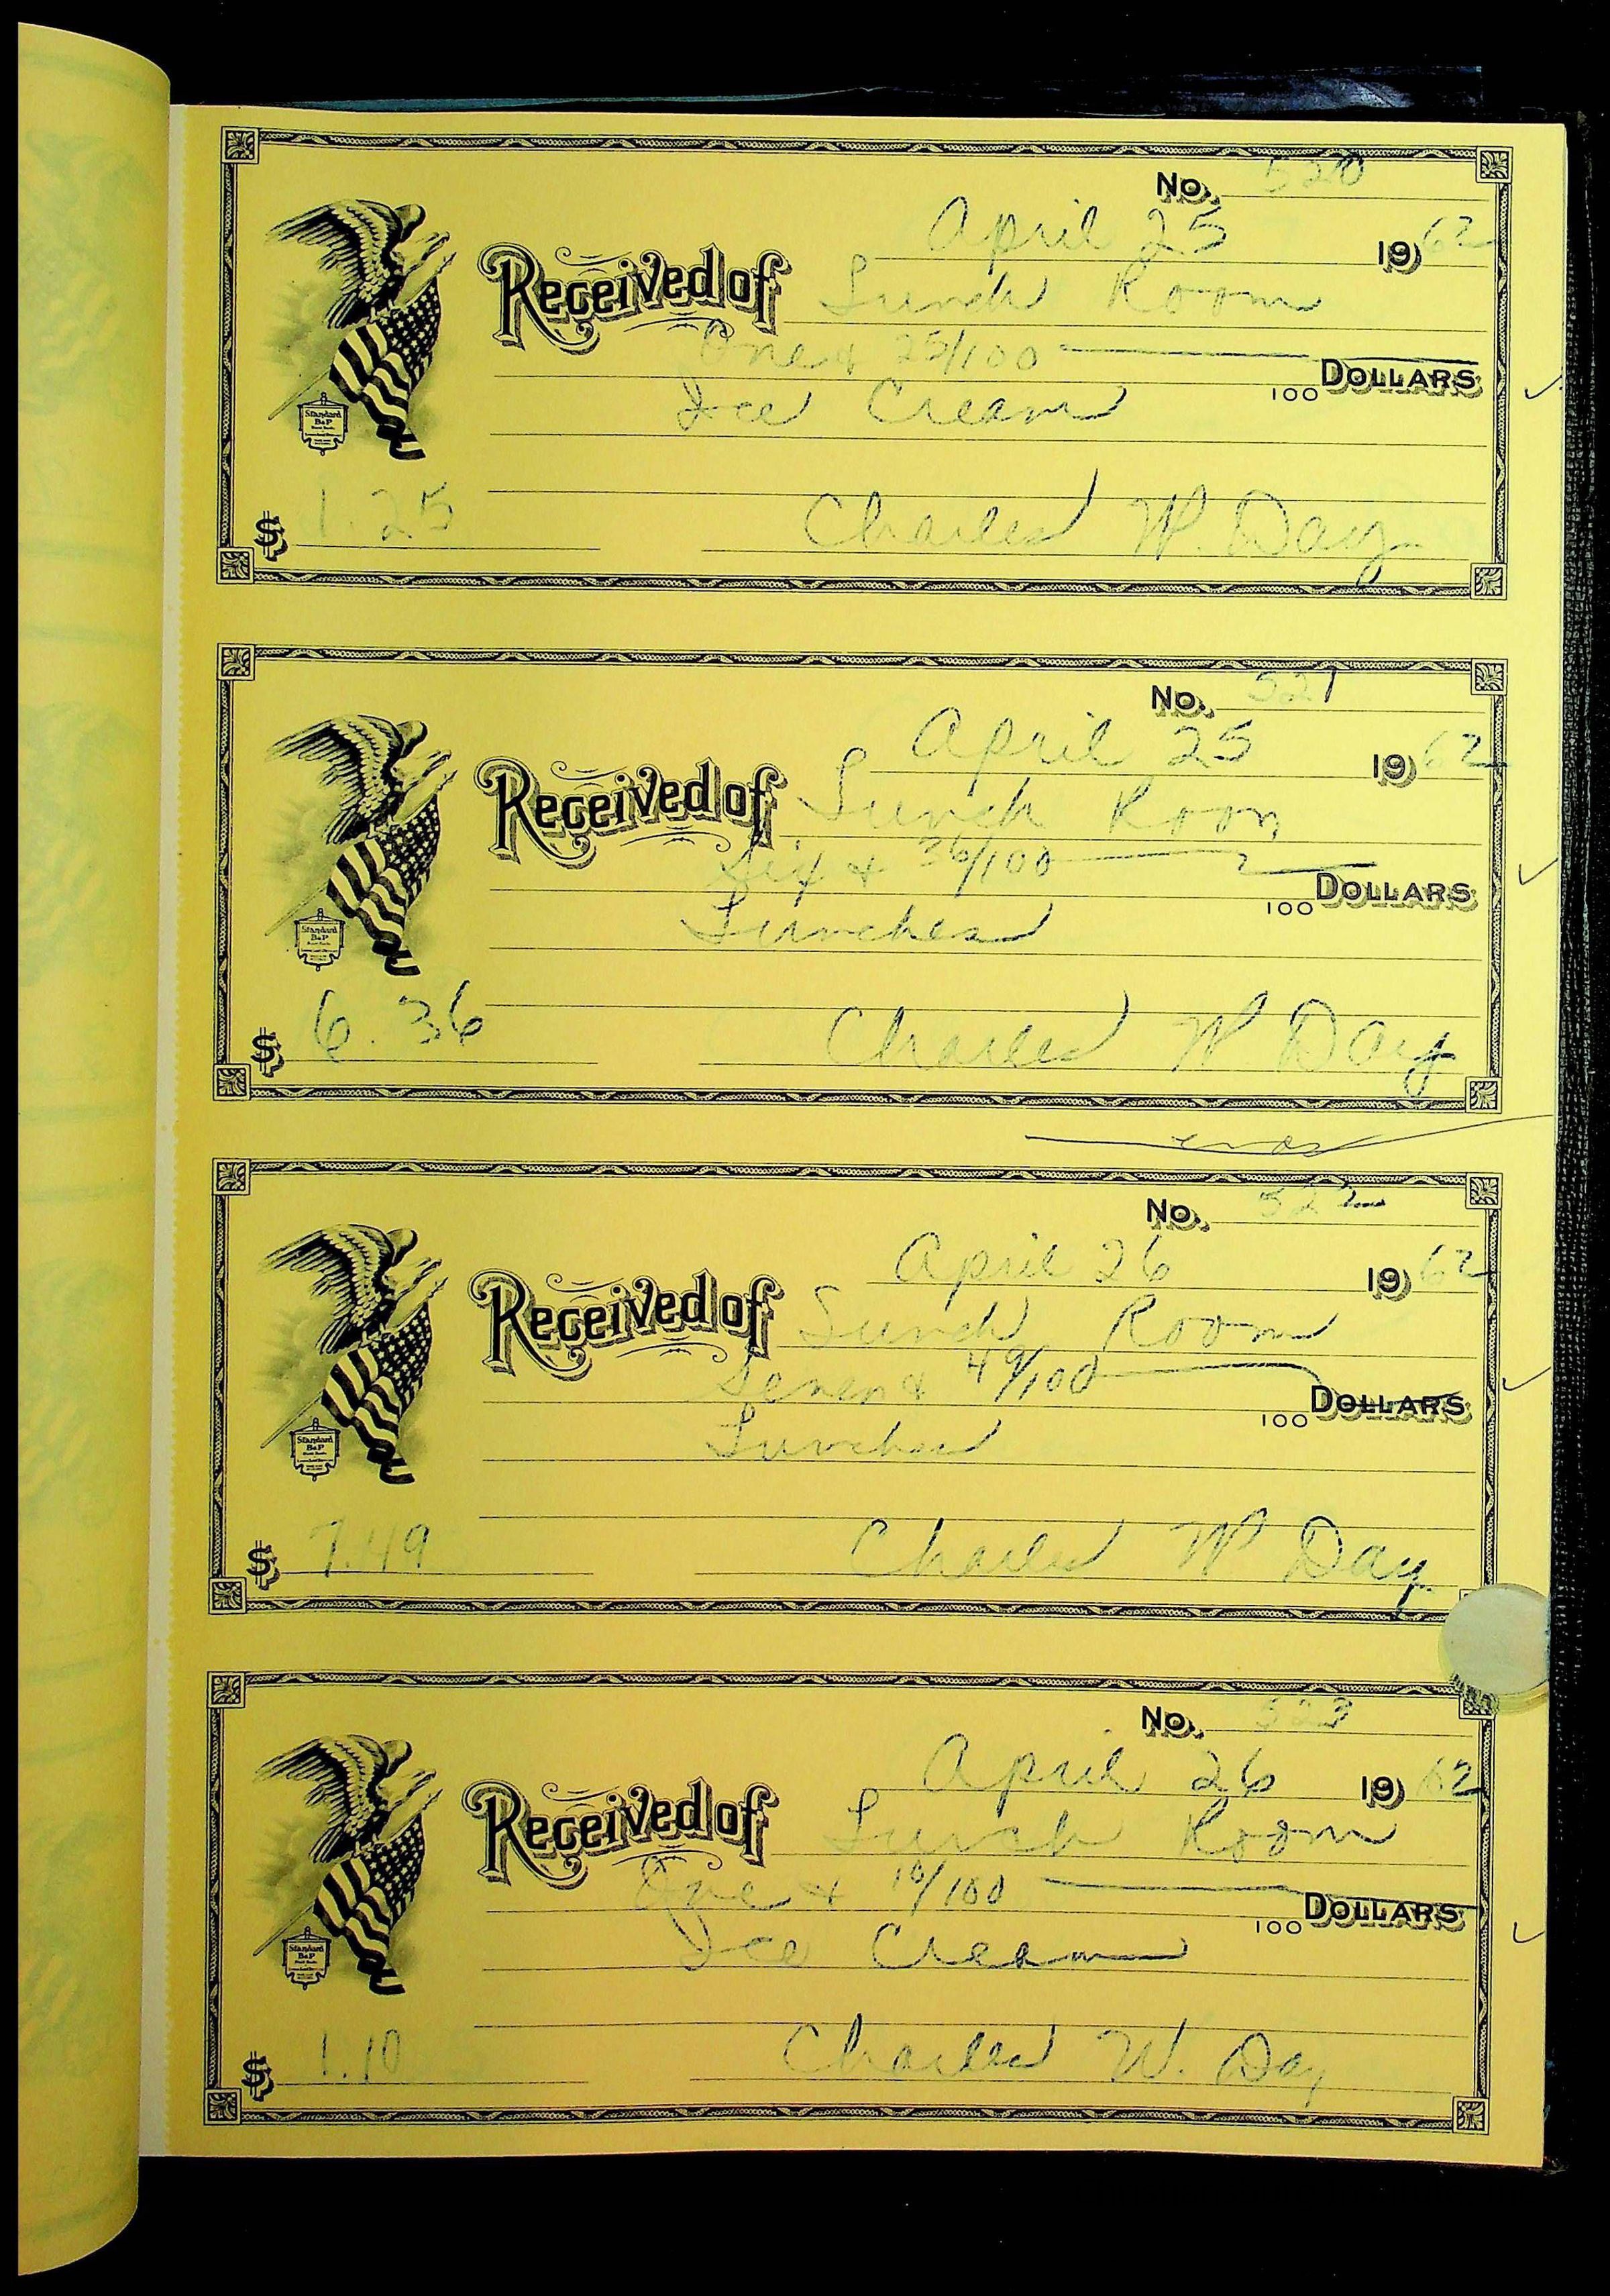 No. 520
April 25 1962
Received of Lunch Room
One & 25/100
100 DOLLARS
Ice Cream
Standard
B&P
$ 1.25
Charles W. Day
No. 521
April 25 1962
Received of Lunch Room
Six & 36/100
100 DOLLARS
Lunches
Standard
B&P
$ 6.36
Charles W. Day
No. 522
April 26 1962
Received of Lunch Room
Seven & 49/100
100 DOLLARS
Lunches
Standard
B&P
$ 7.49
Charles W Day
No. 523
April 26 1962
Received of Lunch Room
One & 10/100
100 DOLLARS
Ice Cream
Standard
B&P
$ 1.10
Charles W. Day